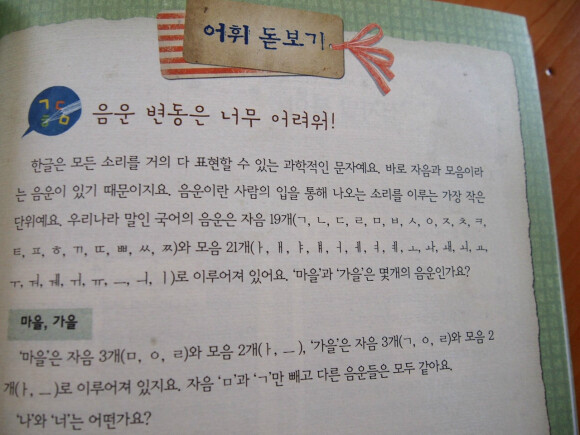 어휘 돋보기
공통
음운 변동은 너무 어려워!
한글은 모든 소리를 거의 다 표현할 수 있는 과학적인 문자예요. 바로 자음과 모음이라
는 음운이 있기 때문이지요. 음운이란 사람의 입을 통해 나오는 소리를 이루는 가장 작은
단위예요. 우리나라 말인 국어의 음운은 자음 19개(ㄱ, ㄴ, ㄷ, ㄹ, ㅁ, ㅂ, ㅅ, ㅇ, ㅈ, ㅊ, ㅋ,
ㅌ, ㅍ, ㅎ, ㄲ, ㄸ, ㅃ, ㅆ, ㅉ)와 모음 21개(ㅏ, ㅐ, ㅑ, ㅒ, ㅓ, ㅔ, ㅕ, ㅖ, ㅗ, ㅘ, ㅙ, ㅚ, ㅛ,
ㅜ, ㅝ, ㅞ, ㅟ, ㅠ, ㅡ, ㅢ, ㅣ)로 이루어져 있어요. ‘마을’과 ‘가을’은 몇개의 음운인가요?
마을, 가을
‘마을’은 자음 3개(ㅁ, ㅇ, ㄹ)와 모음 2개(ㅏ, ㅡ), ‘가을’은 자음 3개(ㄱ, ㅇ, ㄹ)와 모음 2
개(ㅏ, ㅡ)로 이루어져 있지요. 자음 ‘ㅁ’과 ‘ㄱ’만 빼고 다른 음운들은 모두 같아요.
‘나’와 ‘너’는 어떤가요?